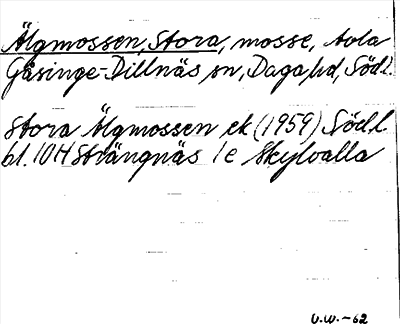 Älgmossen, Stora, mosse, Avla
Gåsinge-Dillnäs sn, Daga hd, Södl.
Stora Älgmossen ek (1959) Södl.
bl. 10H Strängnäs 1e Skylvalla
U.W.-62